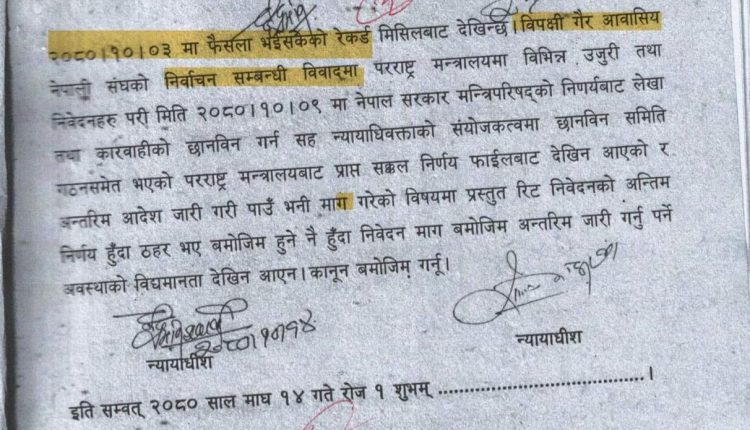 २०८०।१०।०३ मा फैसला भईसकेको रेकर्ड मिसिलबाट देखिन्छ। विपक्षी गैर आवासिय
नेपाली संघको निर्वाचन सम्बन्धी विवादमा परराष्ट्र मन्त्रालयमा विभिन्न उजुरी तथा
निवेदनहरु परी मिति २०८०।१०।०९ मा नेपाल सरकार मन्त्रिपरिषद्को निणर्यबाट लेखा
तथा कारवाहीको छानविन गर्न सह न्यायाधिवक्ताको संयोजकत्वमा छानविन समिति
गठनसमेत भएको परराष्ट्र मन्त्रालयबाट प्राप्त सक्कल निर्णय फाईलबाट देखिन आएको र
अन्तरिम आदेश जारी गरी पाउँ भनी माग गरेको विषयमा प्रस्तुत रिट निवेदनको अन्तिम
निर्णय हुँदा ठहर भए बमोजिम हुने नै हुँदा निवेदन माग बमोजिम अन्तरिम जारी गर्नु पर्ने
अवस्थाको विद्यमानता देखिन आएन। कानून बमोजिम् गर्नू।
२०८०।१०।१४
न्यायाधीश
न्यायाधीश
इति सम्वत् २०८० साल माघ १४ गते रोज १ शुभम् ...................................।